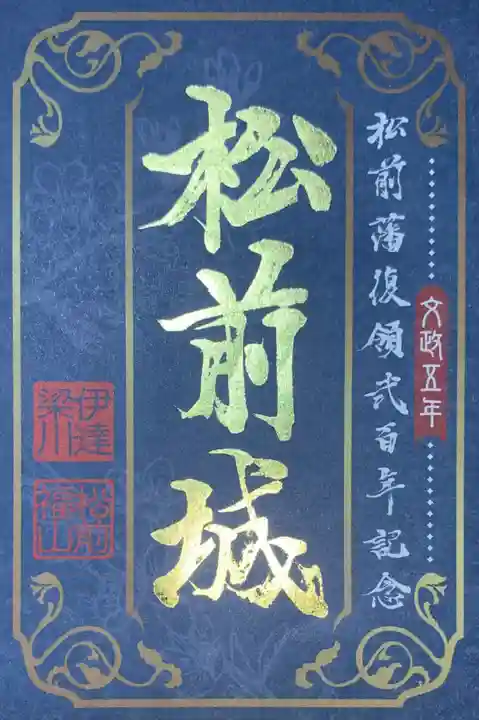 文政五年
松前藩復領弐百年記念
松前城
伊達
梁川
松前
福山